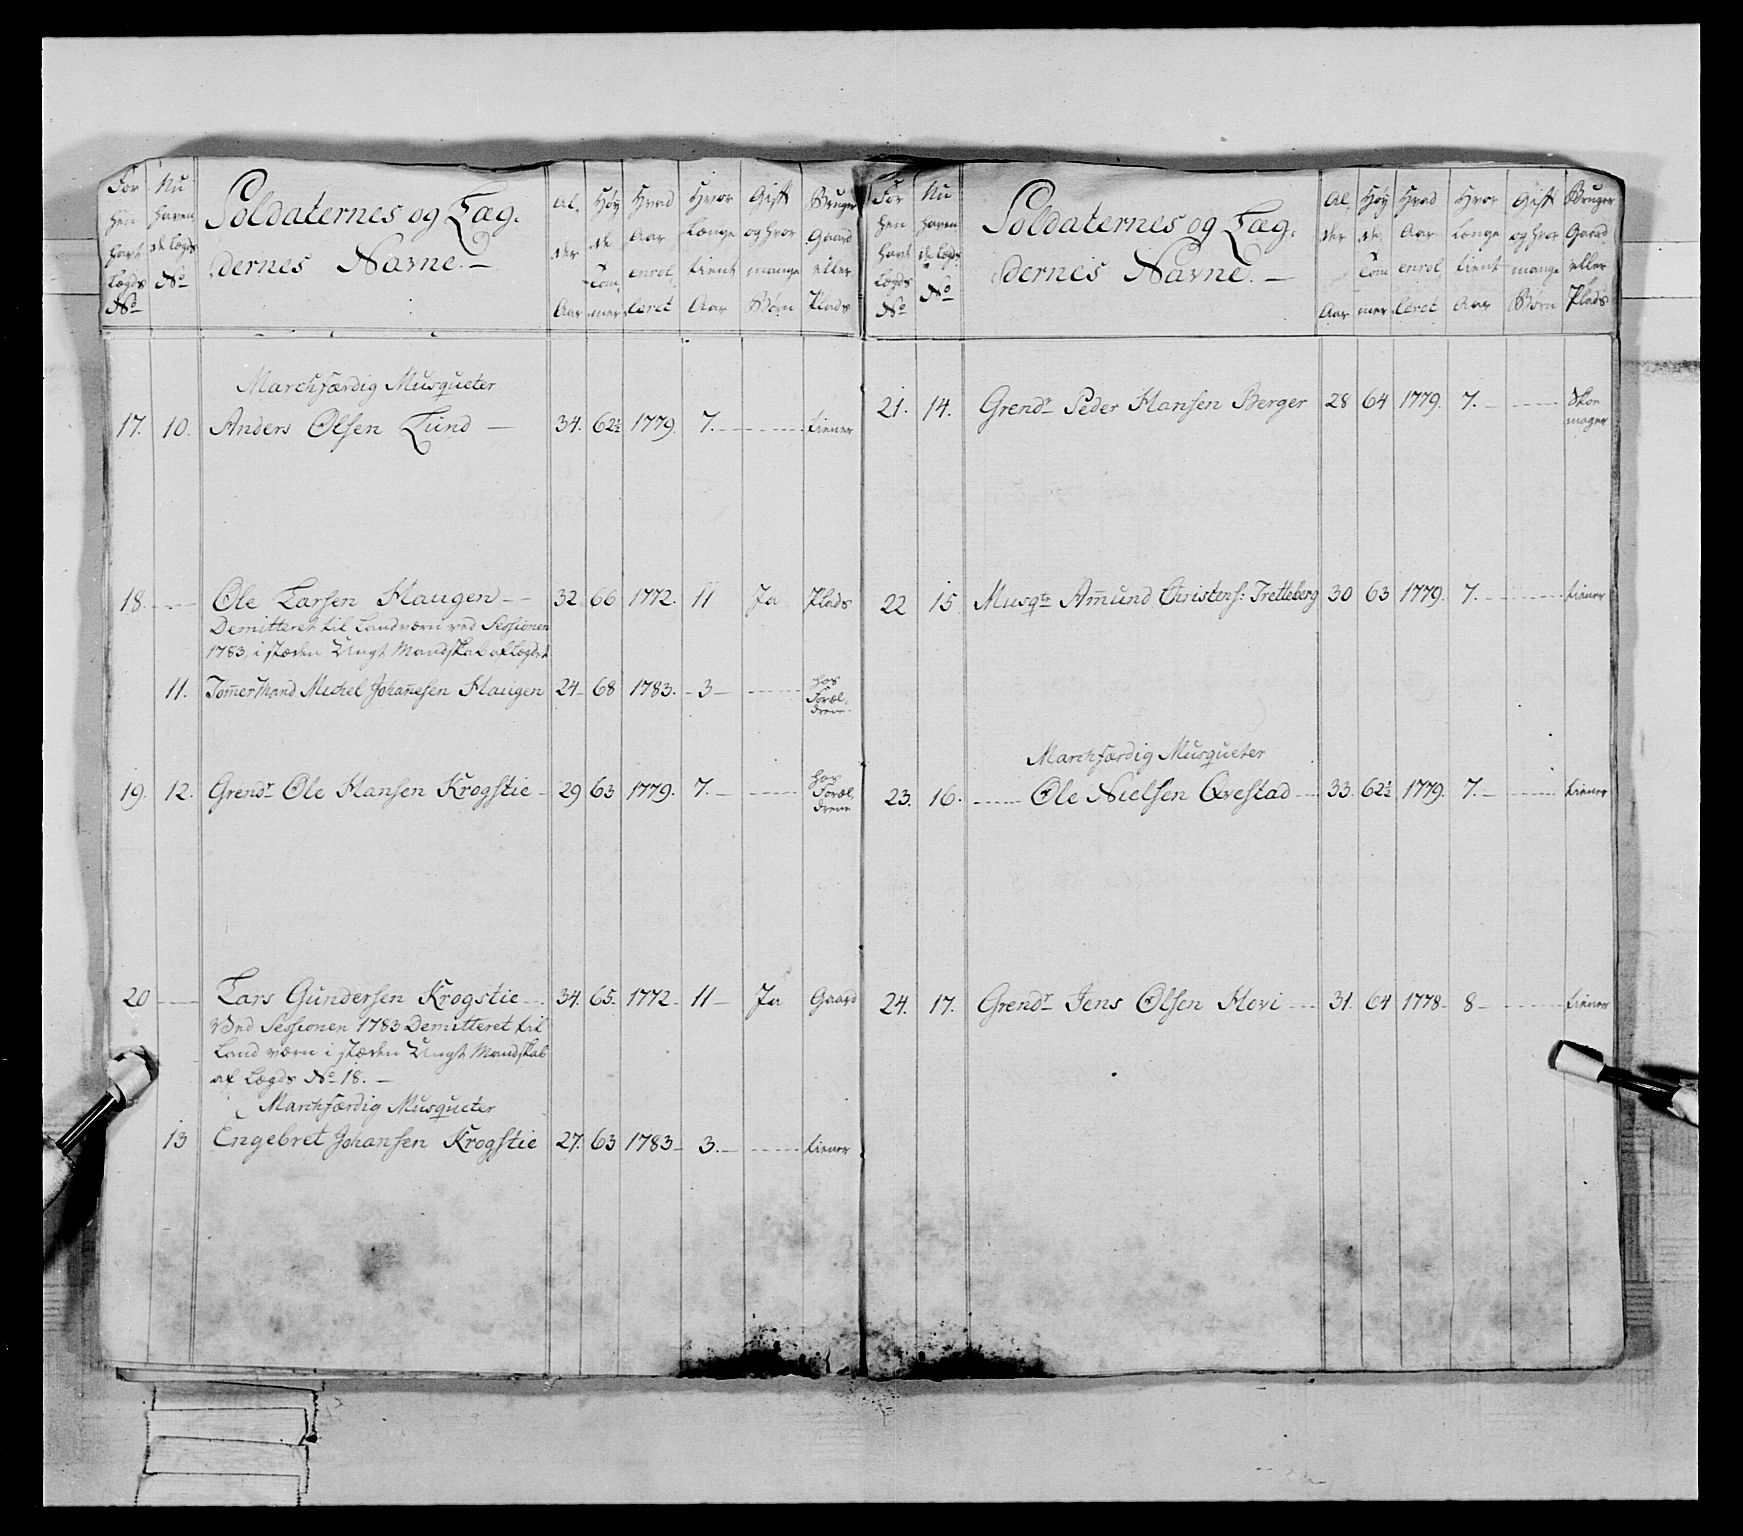 For
hen
havt
Lægds
No
Nu
haven
de Lægds
No
Soldaternes og Læg-
dernes Navne. —
Al-
der
Aar
Høy
de
Tom
mer
Hvad
Aar
enrol
leret
Hvor
Længe
tient
Aar
Gift
og hvor
mange
Børn
Bruger
Gaard
eller
Plads
Marchfærdig Musqueter
17. 10. Anders Olsen Lund — 34. 62½ 1779. 7. — tiener
18. Ole Larsen Haugen — 32. 66 1772. 11 Ja Plads
Demitteret til Landværn ved Sessionen
1783, i stæden Ungt Mandskab af Lægdet
11. Tømermand Michel Johanesen Haugen 24 — 68 1783. — 3 — hos
Foræl-
drene
19. 12. Grendr Ole Hansen Krogstie — 29 63 1779. 7. — hos
Foræl-
drene
20 Lars Gundersen Krogstie — 34. 65. 1772 — 11 — Ja Gaard
Ved Sessionen 1783 Demitteret til
Land værn i stæden Ungt Mandskab
af Lægds No 18. —
Marchfærdig Musqueter
13 Engebret Johansen Krogstie 27. 63 1783 — 3. — tiener
For
hen
havt
Lægds
No
Nu
haven
de Lægds
No
Soldaternes og Læg-
dernes Navne. —
Al-
der
Aar
Høy
de
Tom
mer
Hvad
Aar
enrol
leret
Hvor
Længe
tient
Aar
Gift
og hvor
mange
Børn
Bruger
Gaard
eller
Plads
21. 14. Grendr Peder Hansen Berger 28 64 1779. 7. — Skoe
mager
22 15 Musqtr Amund Christens: Tretteberg 30 63 1779. 7. — tiener
Marchfærdig Musqueter
23. 16. Ole Nielsen Qvestad — 33. 62½ 1779. 7. — tiener
24. 17. Grendr Jens Olsen Hovi — 31. 64 1778 — 8 — tiener